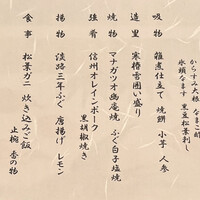 からすみ大根 なまこ酢
氷頭なます 黒豆松葉刺し
吸物 雑煮仕立て 焼餅 小芋 人参
造里 寒鰤雪囲い盛り
焼物 マナガツオ幽庵焼 ふぐ白子塩焼
強肴 信州オレインポーク
黒胡椒焼き
揚物 淡路三年ふぐ 唐揚げ レモン
食事 松葉ガニ 炊き込みご飯
止椀 香の物